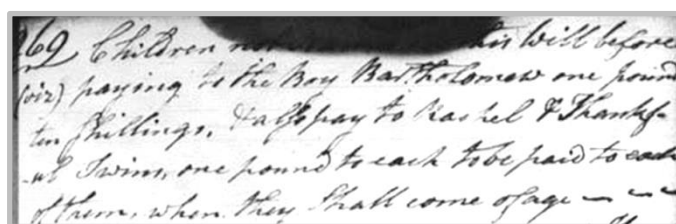 269 Children not his Will before
(viz) paying to the Boy Bartholomew one pound
ten shillings, & also pay to Rachel & Thankf-
-ul Twins, one pound to each to be paid to each
of them, when they shall come of age